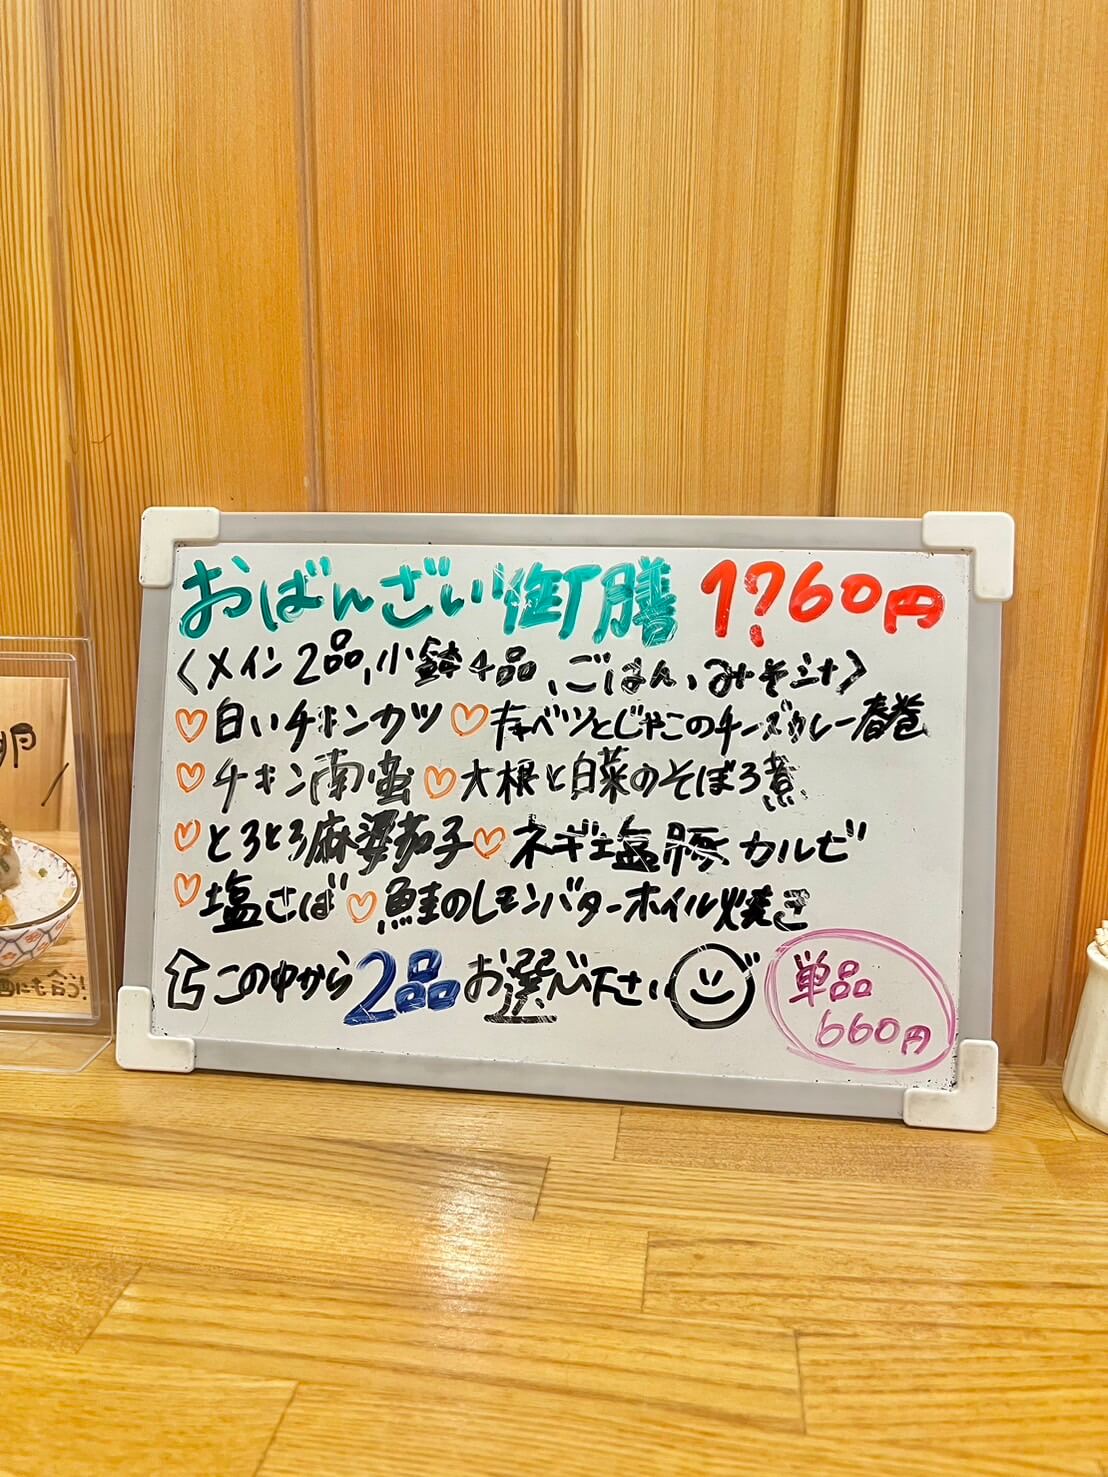 おばんざい御膳 1760円
〈メイン2品、小鉢4品、ごはん、みそ汁〉
♡白いチキンカツ ♡キャベツとじゃこのチーズカレー春巻
♡チキン南蛮 ♡大根と白菜のそぼろ煮
♡とろとろ麻婆茄子 ♡ネギ塩豚カルビ
♡塩さば ♡鮭のレモンバターホイル焼き
この中から2品お選び下さい
単品
660円
卵
酒にも合う!